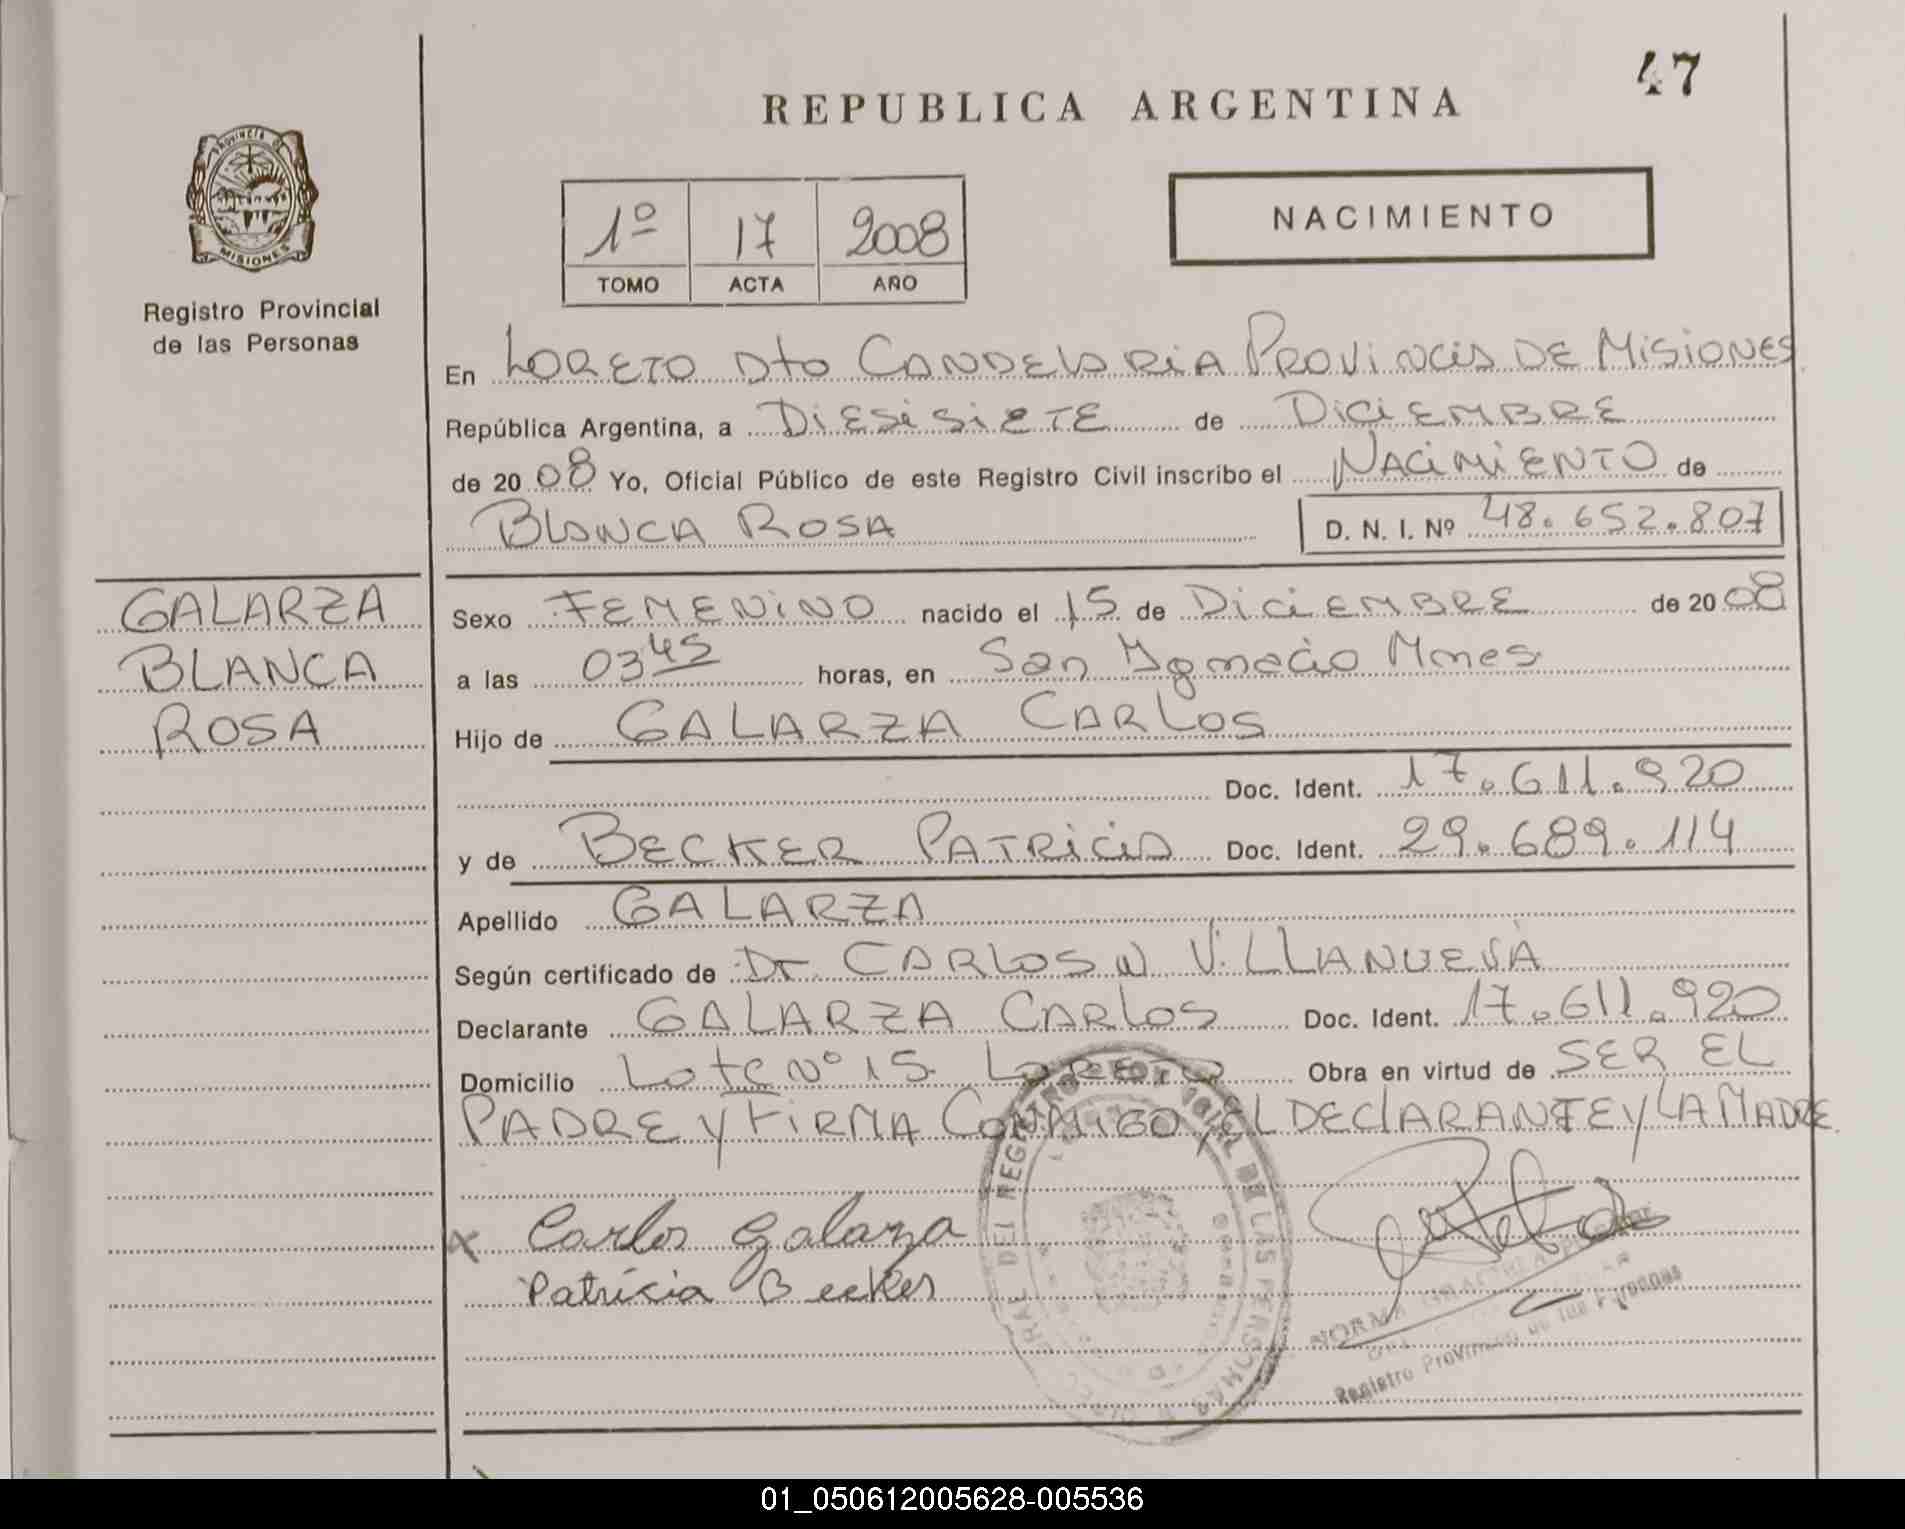 47
REPUBLICA ARGENTINA
PROVINCIA DE
MISIONES
1º 17 2008
TOMO ACTA AÑO
NACIMIENTO
Registro Provincial
de las Personas
En LORETO Dto CANDELARIA PROVINCIA DE MISIONES
República Argentina, a DIESISIETE de DICIEMBRE
de 2008 Yo, Oficial Público de este Registro Civil inscribo el NACIMIENTO de
BLANCA ROSA D. N. I. Nº 48.652.807
GALARZA
BLANCA
ROSA
Sexo FEMENINO nacido el 15 de DICIEMBRE de 2008
a las 03 45 horas, en San Ygnacio Mnes
Hijo de GALARZA CARLOS
Doc. Ident. 17.611.920
y de BECKER PATRICIA Doc. Ident. 29.689.114
Apellido GALARZA
Según certificado de Dr CARLOS N VILLANUEVA
Declarante GALARZA CARLOS Doc. Ident. 17.611.920
Domicilio Lote Nº 15 LORETO Obra en virtud de SER EL
PADRE Y FIRMA CONMIGO, EL DECLARANTE Y LA MADRE.
x Carlos Galarza
Patricia Becker
REGISTRO DE LAS PERSONAS
NORMA
Registro Provincial de las Personas
01_050612005628-005536